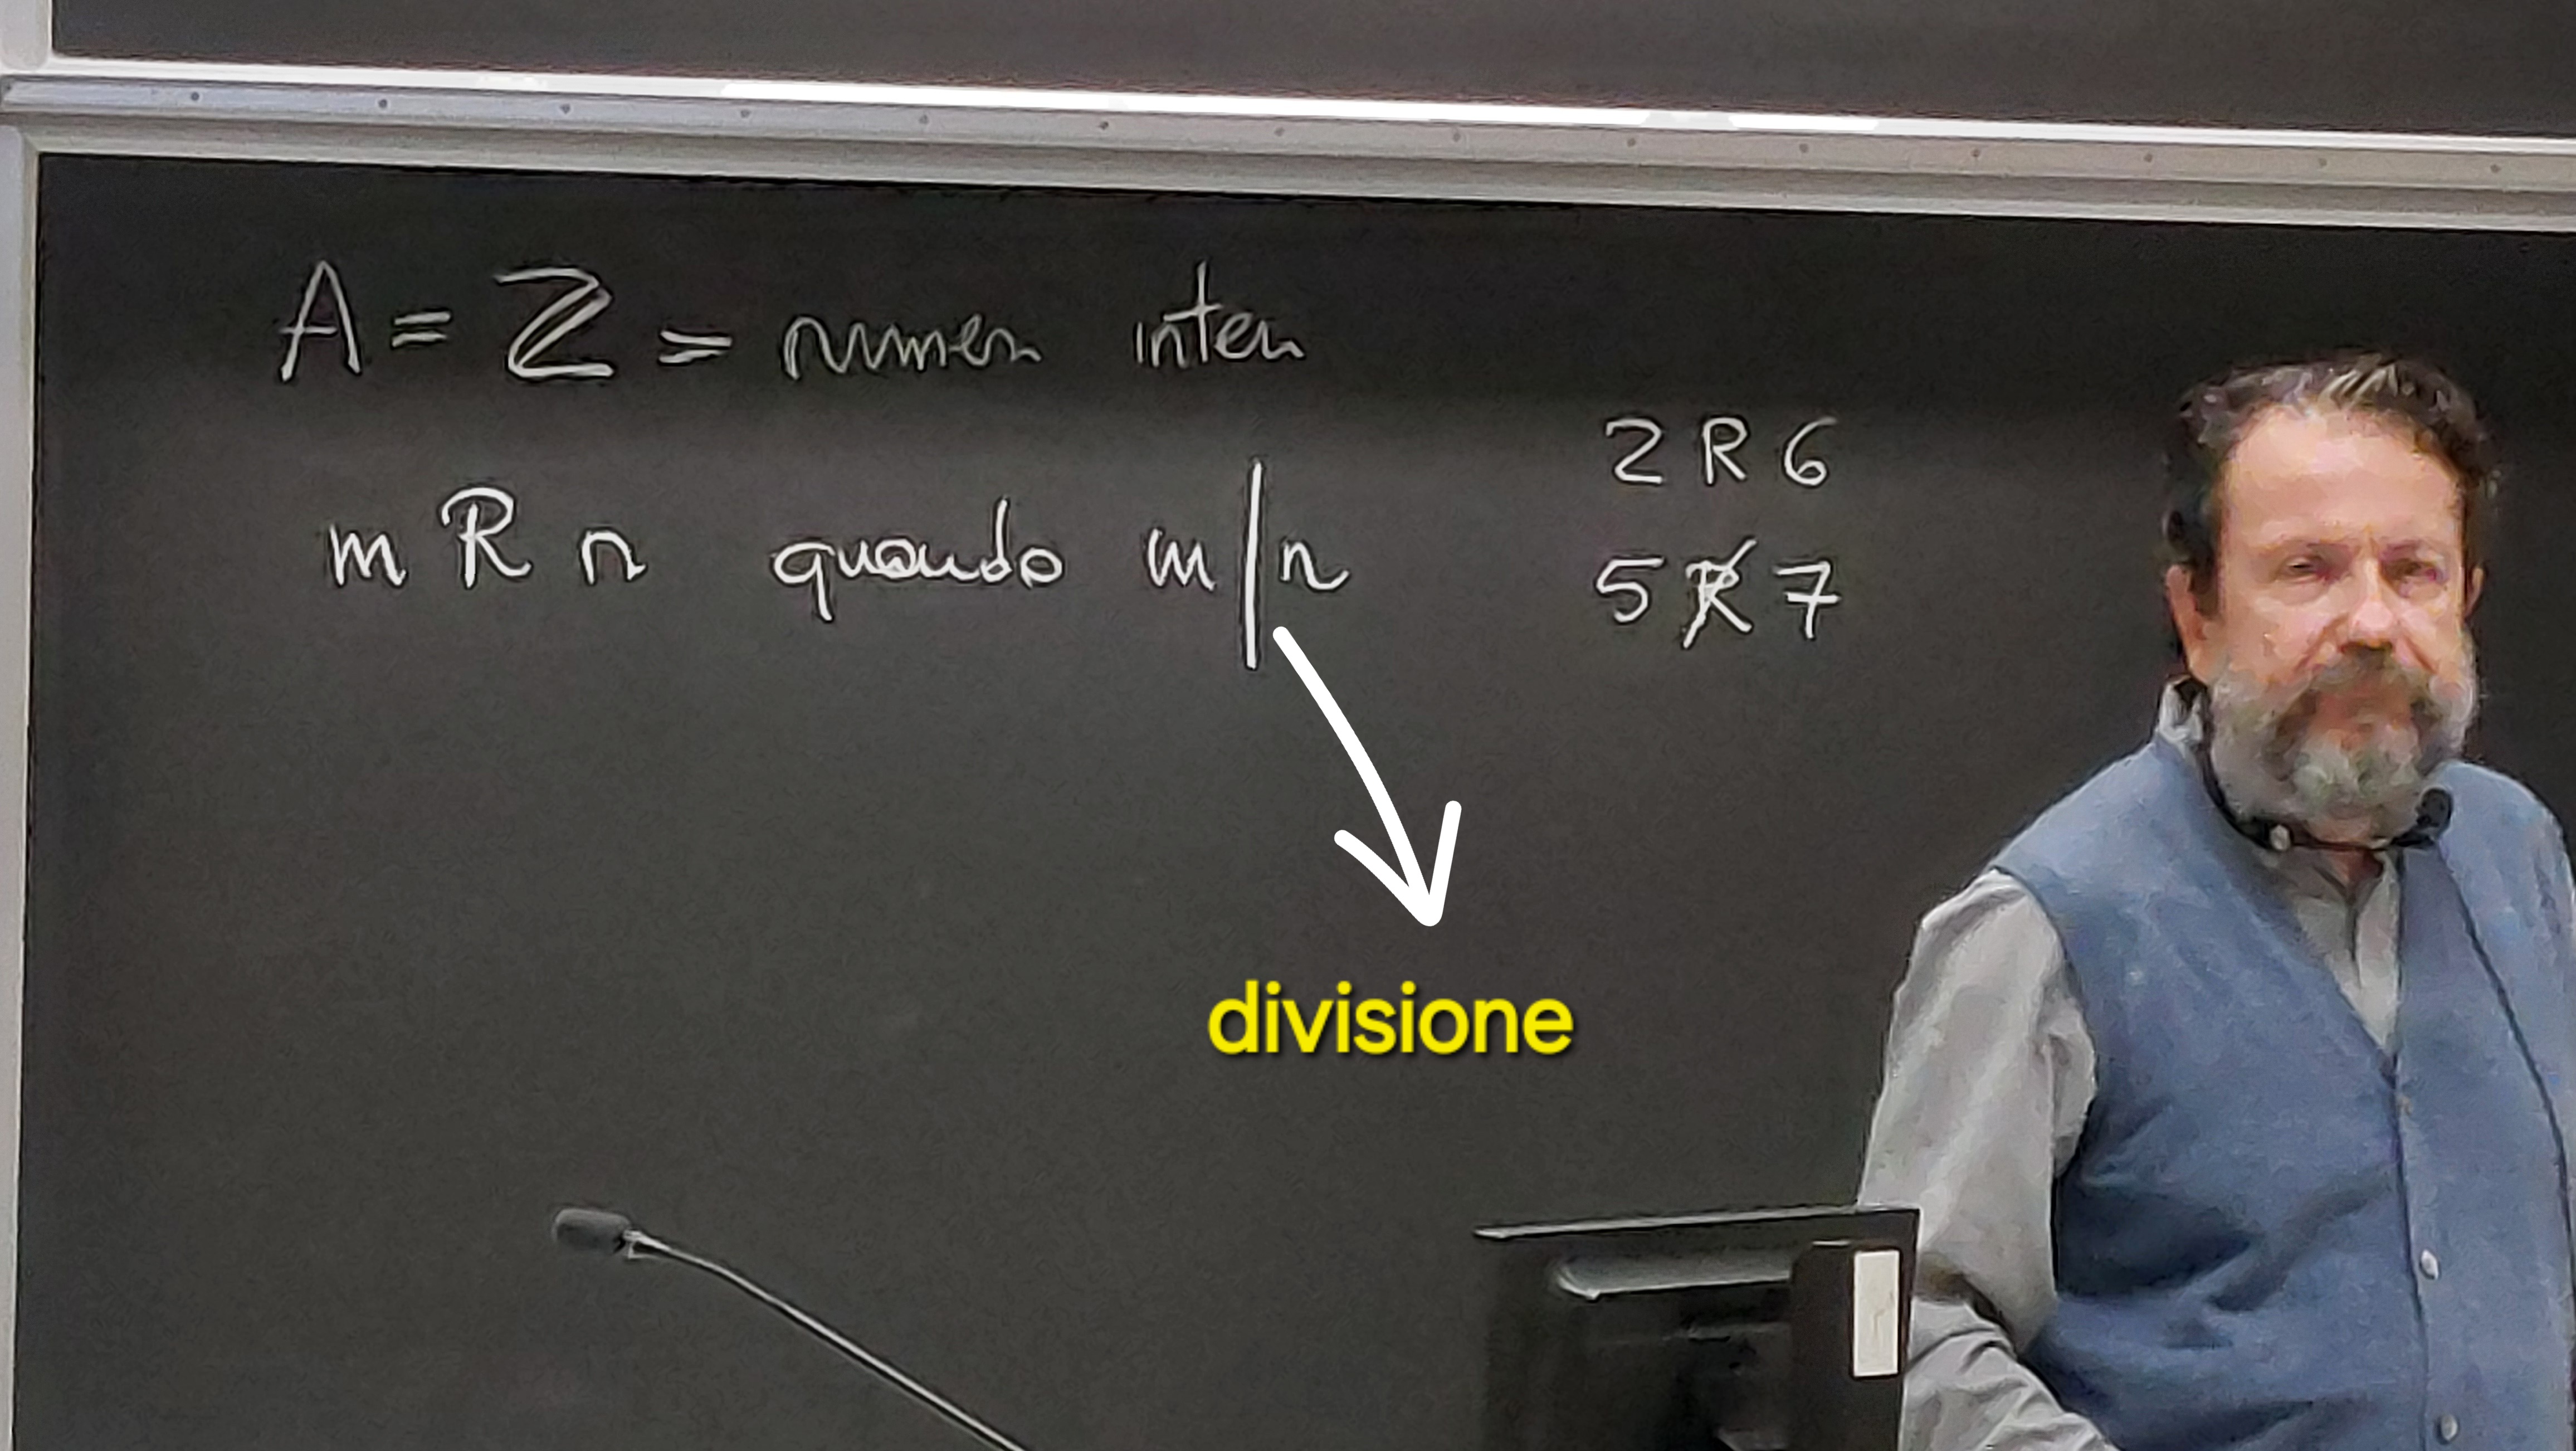 A = ℤ = numeri interi
m R n quando m | n
2 R 6
5 R̸ 7
divisione